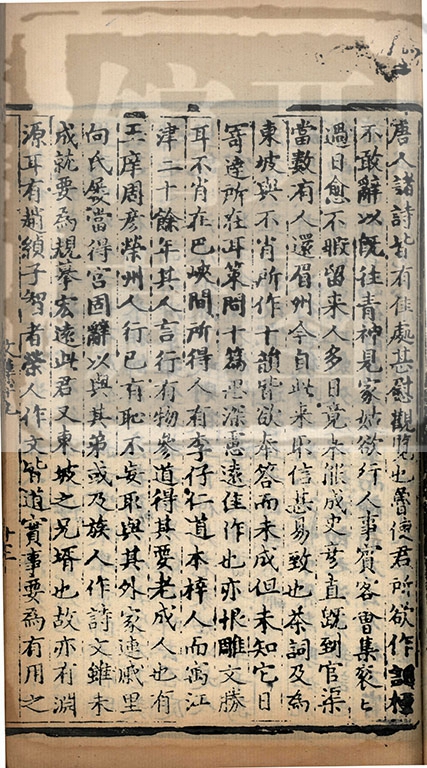 唐人諸詩皆有佳處甚慰觀覽也魯使君所欲作
不敢辭以既往青神見家姑欲行人事賓客會集袞〻
過日愈不暇留來人多日竟未能成史彥直既到官渠
當數有人還眉州今自此來取信甚易致也茶詞及為
東坡與不肖所作十韻皆欲奉答而未成但未知它日
寄達所在耳策問十篇思深憲遠佳作也亦恨雕文勝
耳不肖在巴峽間所得人有李仔仁道本梓人而寓江
津二十餘年其人言行有物參道得其要老成人也有
王庠周彥榮州人行已有恥不妄取與其外家連戚里
向氏屢當得官固辭以與其弟或及族人作詩文雖未
成就要為規摹宏遠此君又東坡之兄壻也故亦有淵
源耳有趙縯子智者榮人作文皆道實事要為有用之
十二